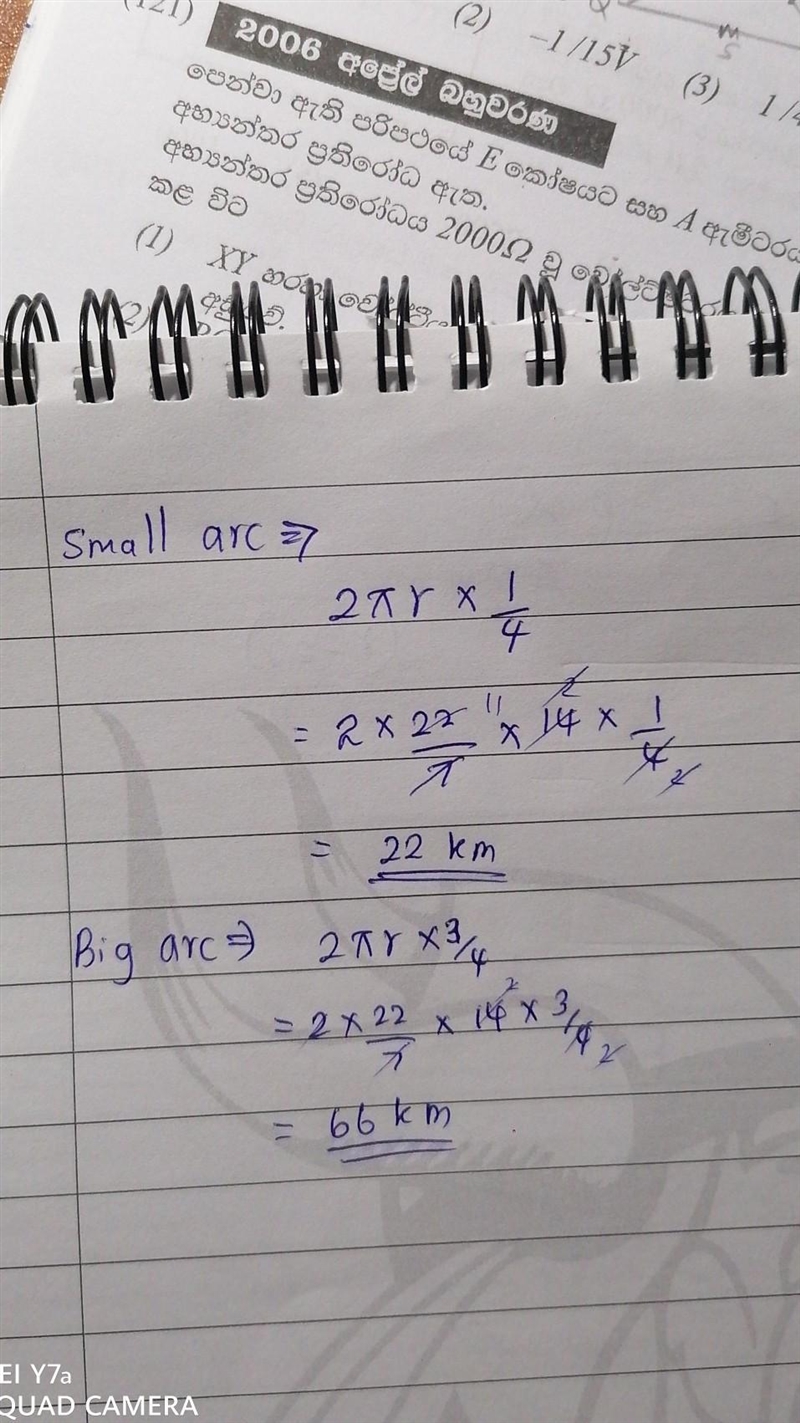 (121)
(2) −1/15V (3) 1/4
m
S
2006 අප්‍රේල් බහුවරණ
පෙන්වා ඇති පරිපථයේ E කෝෂයට සහ A ඇමීටරය
අභ්‍යන්තර ප්‍රතිරෝධ ඇත.
අභ්‍යන්තර ප්‍රතිරෝධය 2000Ω වූ
කළ විට
(1) XY හරහා
(2)
Small arc ⇒
2πr × 1/4
= 2 × 22/7 11 × 14 2 × 1/4 2
= 22 km
Big arc ⇒ 2πr × 3/4
= 2 × 22/7 × 14 2 × 3/4 2
= 66 km
EI Y7a
QUAD CAMERA